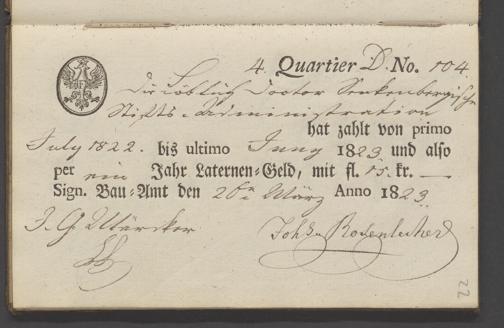 4. Quartier D. No. 104.
Die Löblich Doctor Senkenbergische
Stifts-Administration
hat zahlt von primo
July 1822. bis ultimo Juny 1823 und also
per ein Jahr Laternen-Geld, mit fl. 15. kr. —
Sign. Bau-Amt den 26n März Anno 1823.
J. G. Märcker Joh. Rosenlecher
22